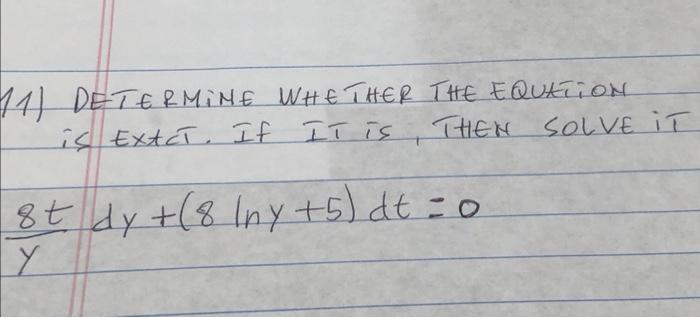 11) DETERMINE WHETHER THE EQUATION
is EXACT. If IT is, THEN SOLVE iT
8t/y dy + (8 ln y + 5) dt = 0